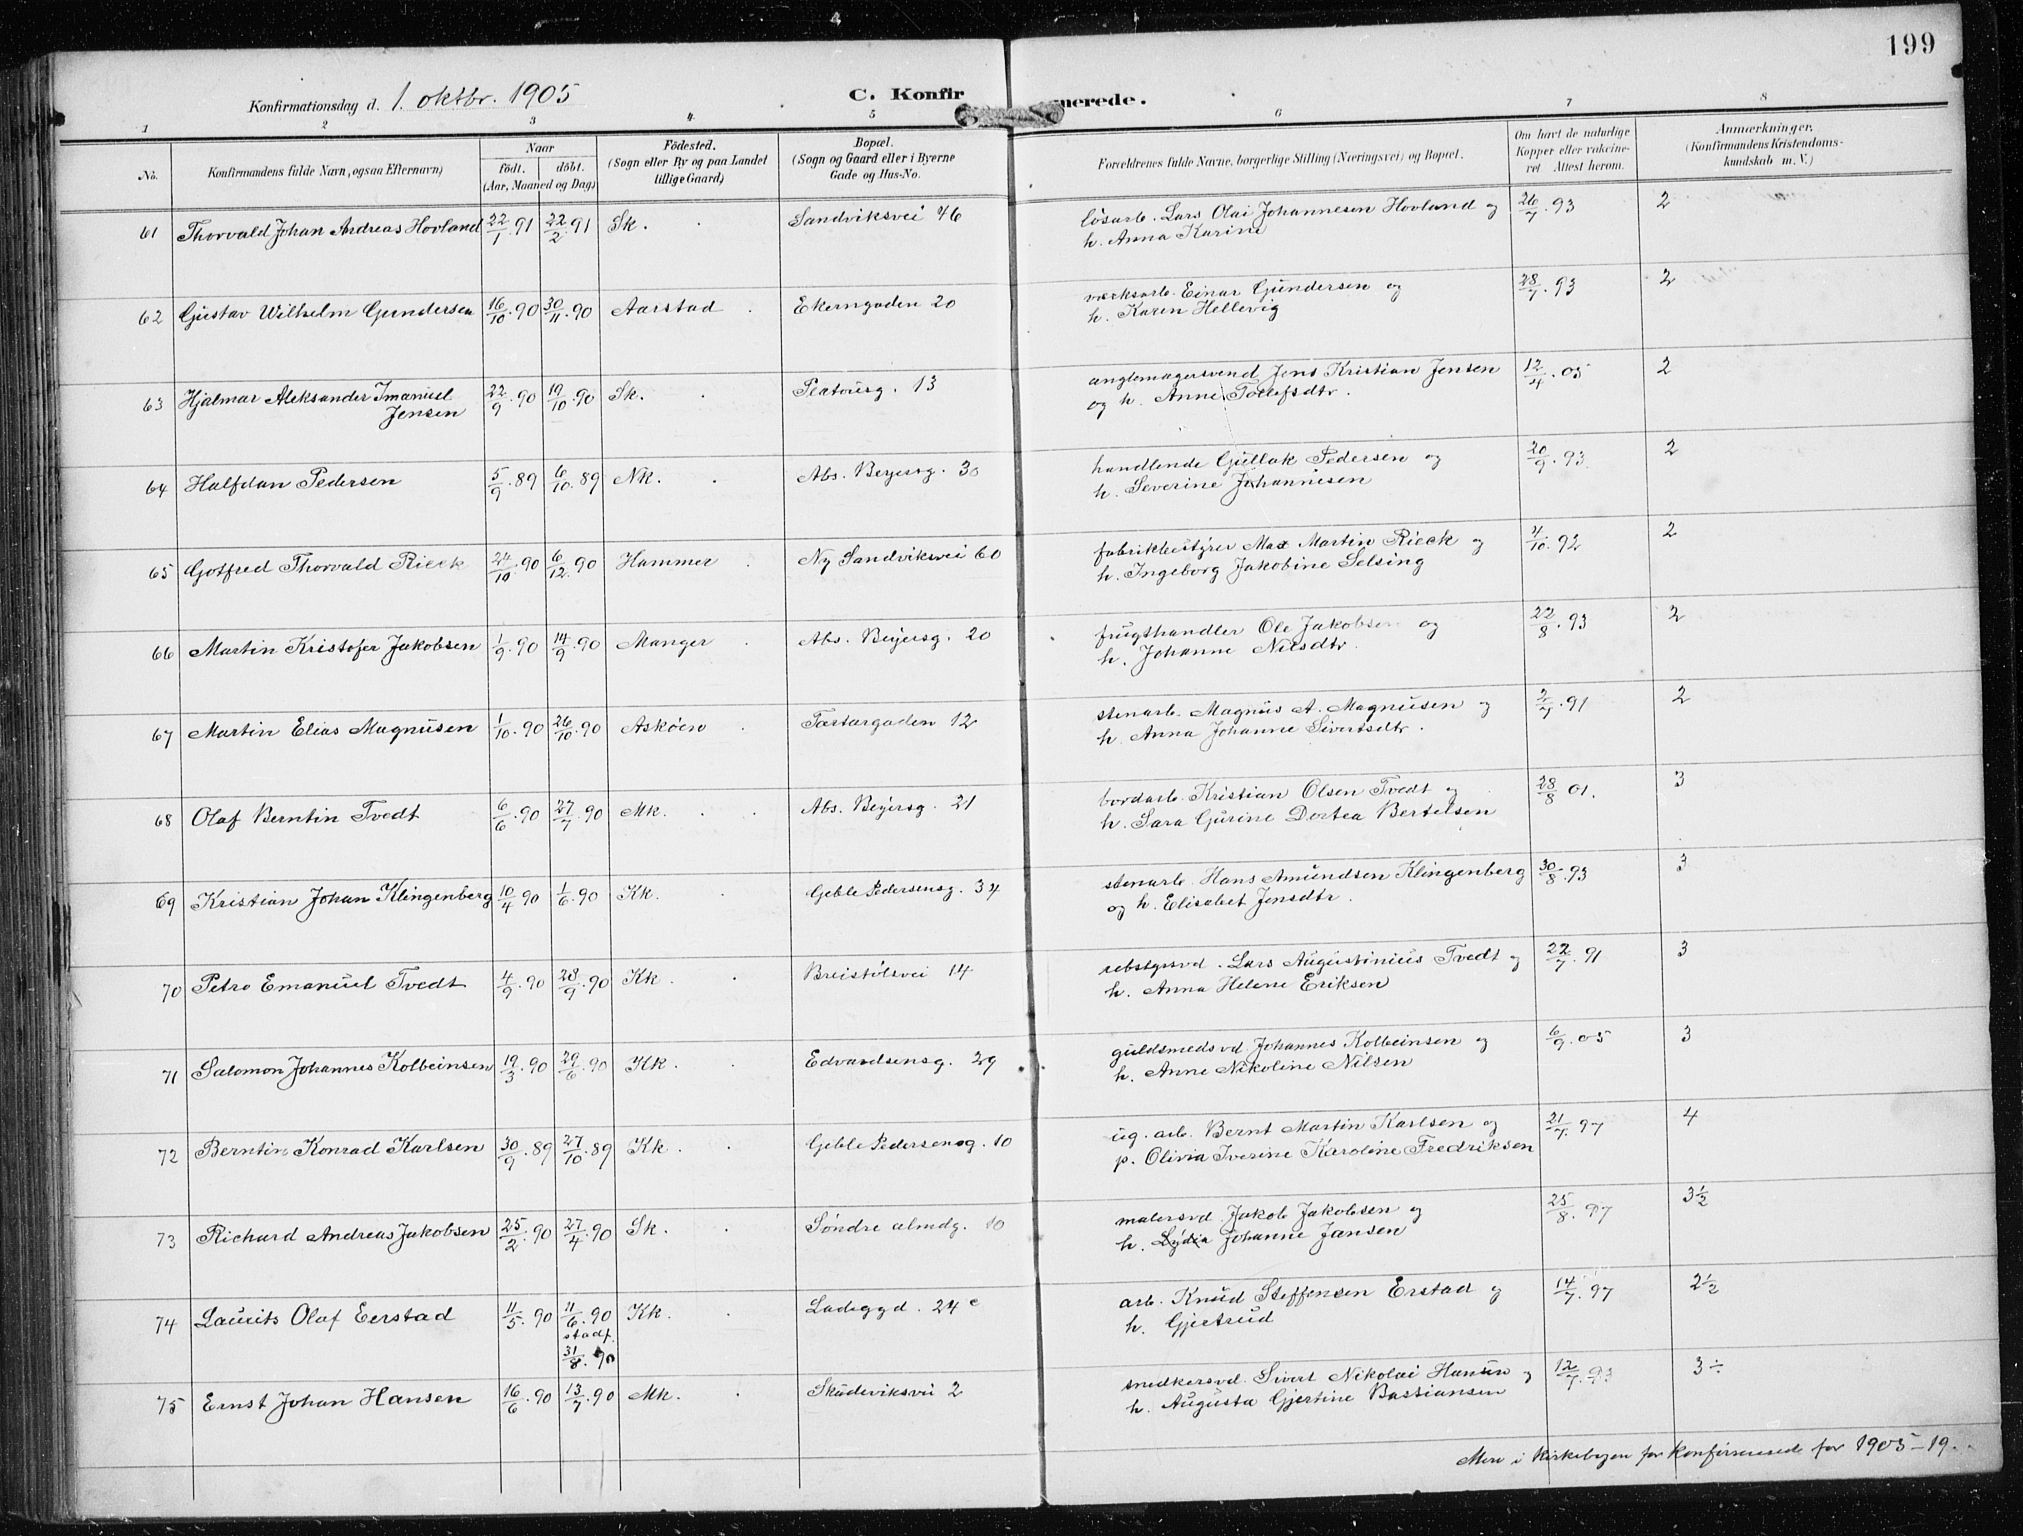 199
Konfirmationsdag d. 1. oktbr. 1905
C. Konfirmerede.
1 2 3 4 5 6 7 8
No. Konfirmandens fulde Navn, ogsaa Efternavn)
Naar
født. døbt.
(Aar, Maaned og Dag)
Fødested.
(Sogn eller By og paa Landet
tillige Gaard)
Bopæl.
(Sogn og Gaard eller i Byerne
Gade og Hus-No.
Forældrenes fulde Navne, borgerlige Stilling (Næringsvei) og Bopæl.
Om havt de naturlige
Kopper eller vakcine-
ret Attest herom.
Anmærkninger.
(Konfirmandens Kristendoms-
kundskab m. V.)
61 Thorvald Johan Andreas Hovland 22/1.91 22/2.91 Sk. Sandviksvei 46 løsarb. Lars Olai Johannesen Hovland og 26/7.93 2
h. Anna Karine
62 Gustav Wilhelm Gundersen 16/10.90 30/11.90 Aarstad Ekerngaden 20 værksarb. Einar Gundersen og 28/7.93 2
h. Karen Hellevig
63 Hjalmar Aleksander Imanuel 22/9.90 19/10.90 Sk. Platousg. 13 anglemagersvend Jens Kristian Jensen 12/4.05 2
Jensen og h. Anne Tollefsdtr.
64 Halfdan Pedersen 5/9.89 6/10.89 Nk. Abs. Beyersg. 30 handlende Gullak Pedersen og 20/9.93. 2
h. Severine Johannesen
65 Gotfred Thorvald Rieck 24/10.90 6/12.90 Hammer Ny Sandviksvei 60 fabrikbestyrer Max Martin Rieck og 4/10.92 2
h. Ingeborg Jakobine Selsing
66 Martin Kristofer Jakobsen 1/9.90 14/9.90 Manger Abs. Beyersg. 20 frugthandler Ole Jakobsen og 22/8.93 2
h. Johanne Nilsdtr.
67 Martin Elias Magnusen 1/10.90 26/10.90 Askøen Tartargaden 12 stenarb. Magnus A. Magnusen og 2/7.91 2
h. Anna Johanne Sivertsdtr.
68 Olaf Berntin Tvedt 6/6.90 27/7.90 Mk. Abs. Beyersg. 21 bordarb. Kristian Olsen Tvedt og 28/8 01. 3
h. Sara Gurine Dortea Bertelsen
69 Kristian Johan Klingenberg 10/4.90 1/6.90 Kk. Geble Pedersensg. 34 stenarb. Hans Amundsen Klingenberg 30/8.93 3
og h. Elisabet Jensdtr.
70 Petro Emanuel Tvedt 4/9.90 28/9.90 Kk. Breistølsvei 14 rebslgrsvd. Lars Augustinius Tvedt og 22/7.91 3
h. Anna Helene Eriksen
71 Salomon Johannes Kolbeinsen 19/3.90 29/6.90 Kk. Edvardsensg. 29 guldsmedsvd. Johannes Kolbeinsen og 6/9.05 3
h. Anne Nikoline Nilsen
72 Berntin Konrad Karlsen 30/9.89 27/10.89 Kk. Geble Pedersensg. 10 ug. arb. Bernt Martin Karlsen og 21/7.97 4
p. Olivia Iverine Karoline Fredriksen
73 Richard Andreas Jakobsen 25/2.90 27/4.90 Sk. Søndre almdg. 10 malersvd. Jakob Jakobsen og 25/8.97 3½
h. Lydia Johanne Jansen
74 Laurits Olaf Eerstad 11/5.90 11/6.90 Kk. Ladeggd. 24c arb. Knud Steffensen Erstad og 14/7.97 2½
stadf. h. Gjertrud
31/8.90
75 Ernst Johan Hansen 16/6.90 13/7.90 Mk. Skudeviksvei 2 snedkersvd. Sivert Nikolai Hansen og 12/7.93 3÷
h. Augusta Gjertine Bastiansen
Mere i Kirkebogen for konfirmerede for 1905–19..